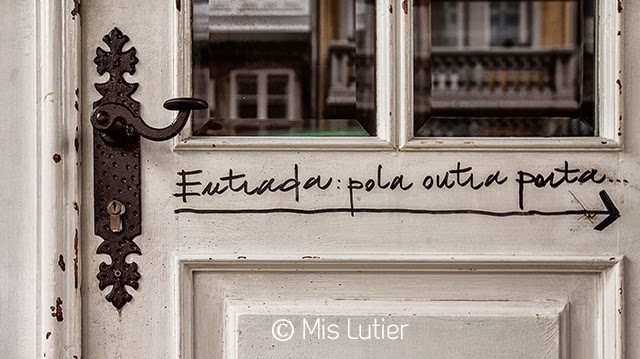 Entrada: pola outra porta...
© Mis Lutier